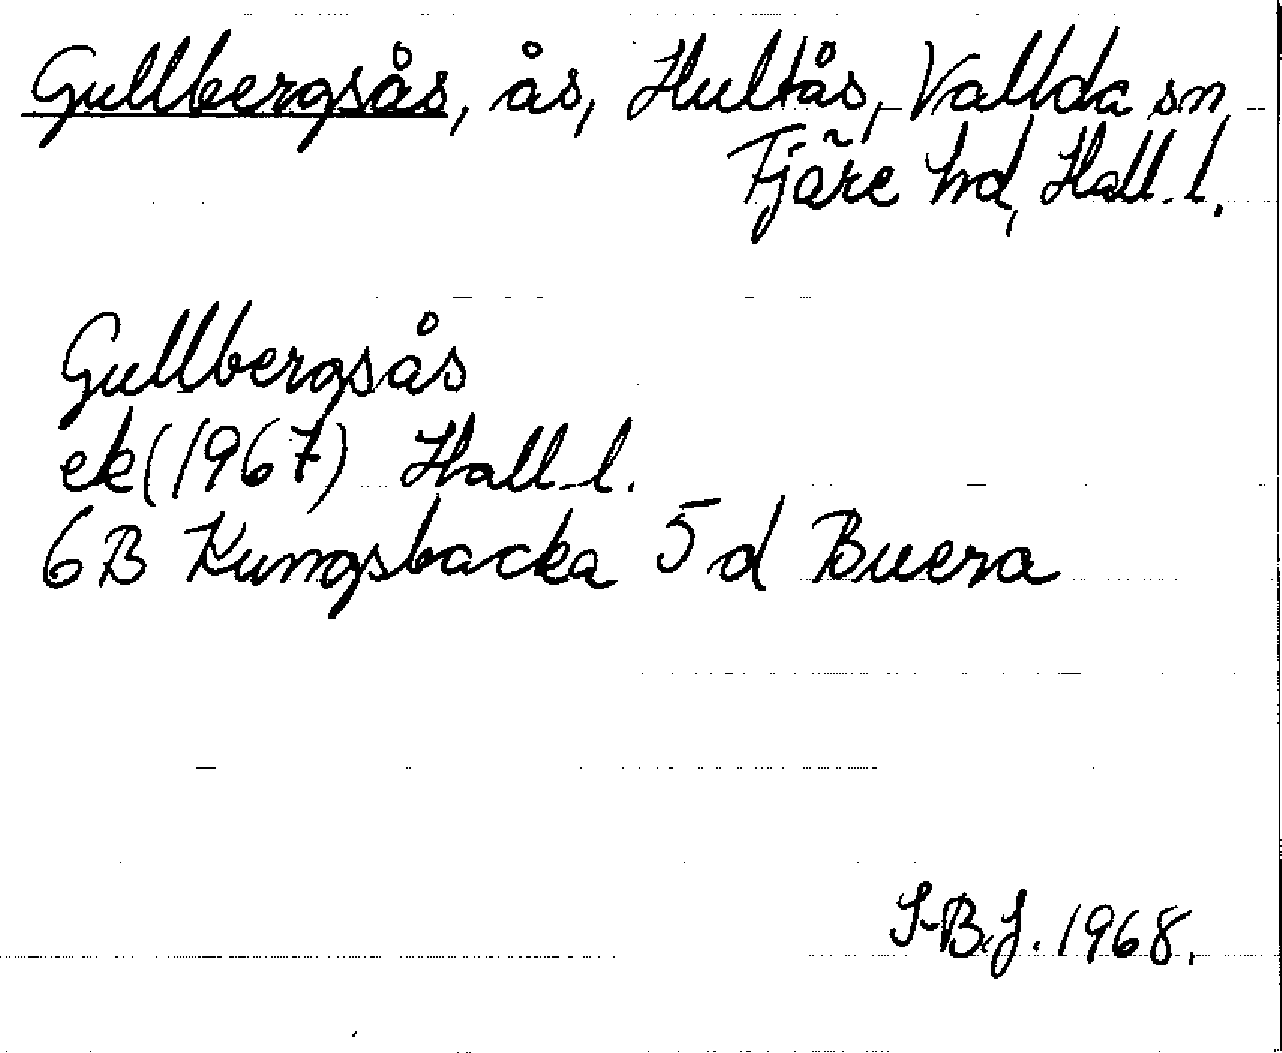 Gullbergsås, ås, Hultås, Vallda sn,
Fjäre hd, Hall. l.
Gullbergsås
ek (1967) Hall. l.
6B Kungsbacka 5 d Buera
S-B.J. 1968.